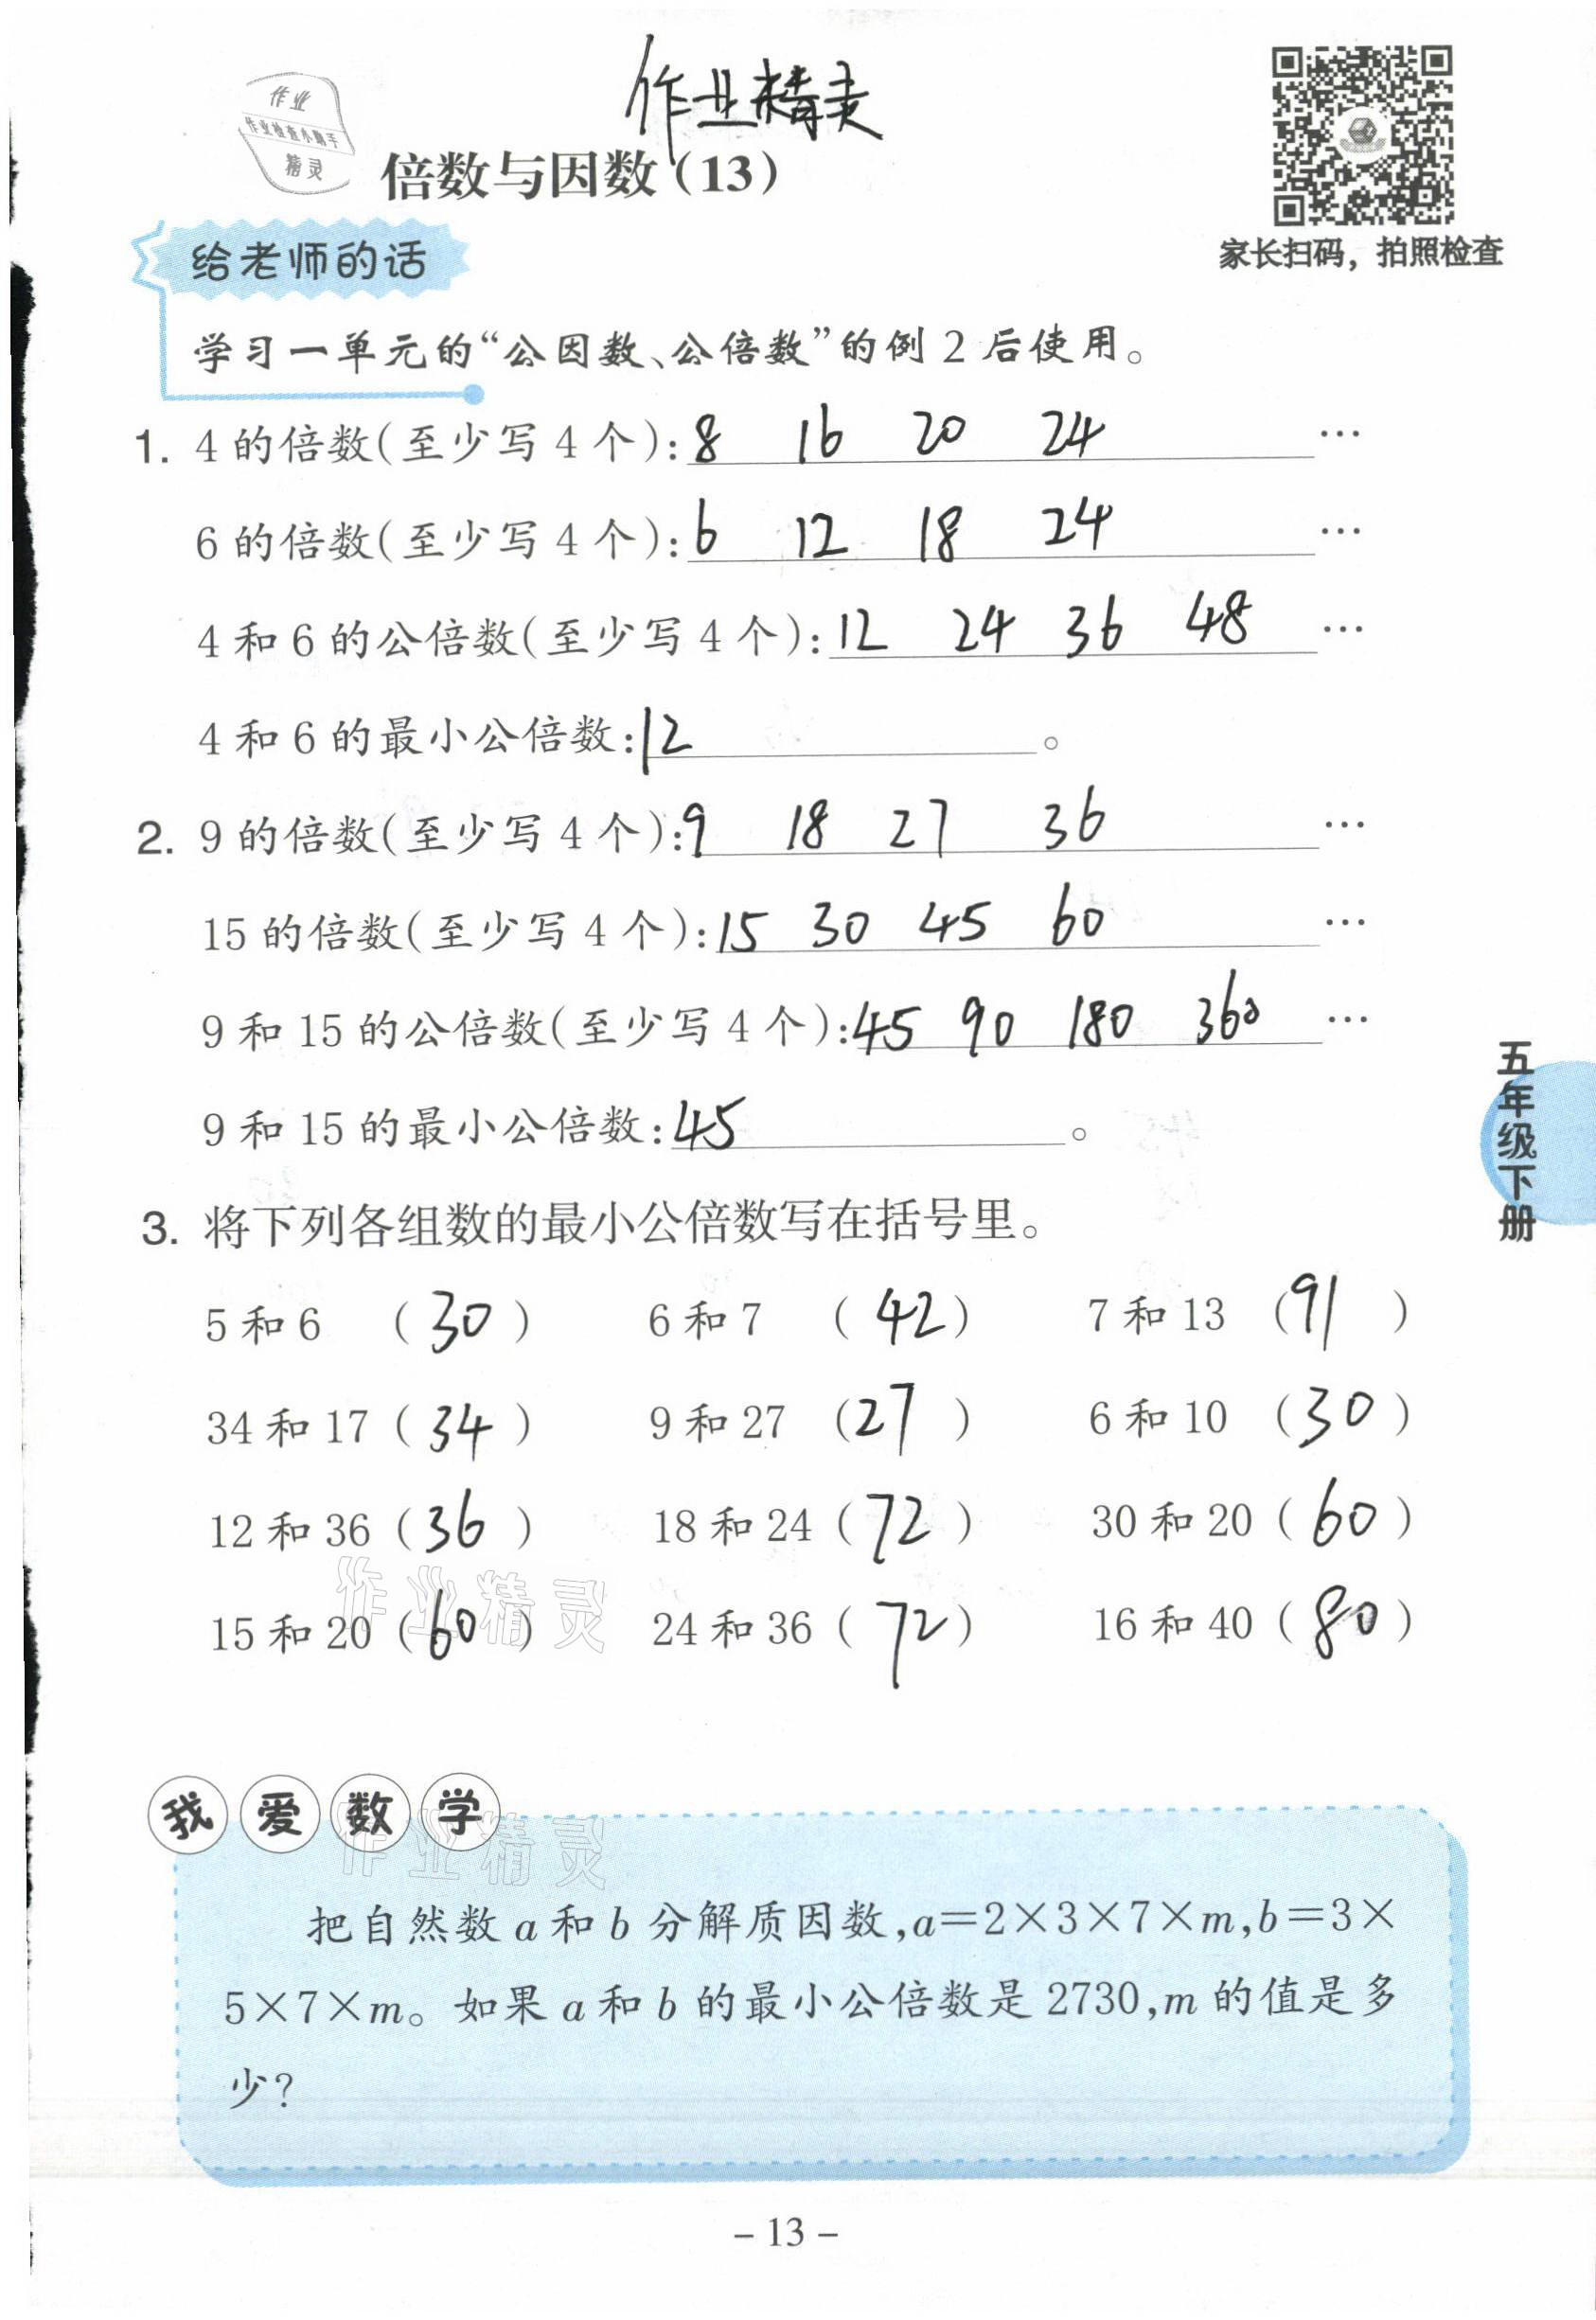 作业精灵
作业
作业检查小助手
精灵
倍数与因数(13)
家长扫码，拍照检查
给老师的话
学习一单元的“公因数、公倍数”的例2后使用。
1. 4的倍数(至少写4个):8 16 20 24 …
6的倍数(至少写4个):6 12 18 24 …
4和6的公倍数(至少写4个):12 24 36 48 …
4和6的最小公倍数:12。
2. 9的倍数(至少写4个):9 18 27 36 …
15的倍数(至少写4个):15 30 45 60 …
9和15的公倍数(至少写4个):45 90 180 360 …
9和15的最小公倍数:45。
五年级下册
3. 将下列各组数的最小公倍数写在括号里。
5和6 (30) 6和7 (42) 7和13 (91)
34和17(34) 9和27 (27) 6和10 (30)
12和36(36) 18和24(72) 30和20(60)
作业精灵
15和20(60) 24和36(72) 16和40(80)
我爱数学
作业精灵
把自然数a和b分解质因数,a=2×3×7×m,b=3×
5×7×m。如果a和b的最小公倍数是2730,m的值是多
少?
-13-